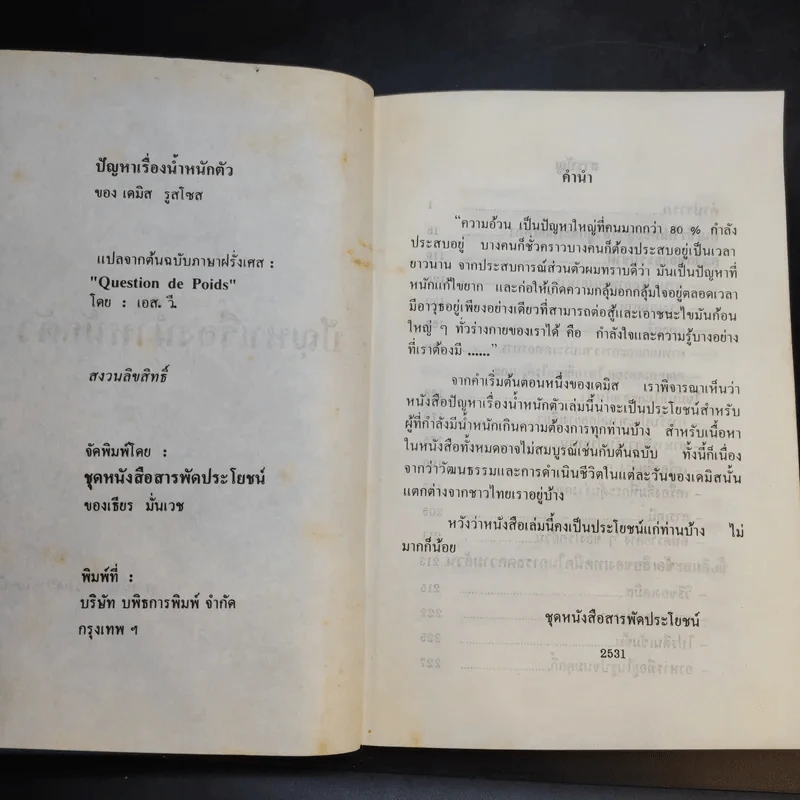 ปัญหาเรื่องน้ำหนักตัว
ของ เดมิส รูสโซส
แปลจากต้นฉบับภาษาฝรั่งเศส :
"Question de Poids"
โดย : เอส. วี.
สงวนลิขสิทธิ์
จัดพิมพ์โดย :
ชุดหนังสือสารพัดประโยชน์
ของเธียร มั่นเวช
พิมพ์ที่ :
บริษัท บพิธการพิมพ์ จำกัด
กรุงเทพ ฯ
คำนำ
“ความอ้วน เป็นปัญหาใหญ่ที่คนมากกว่า 80 % กำลัง
ประสบอยู่ บางคนก็ชั่วคราวบางคนก็ต้องประสบอยู่เป็นเวลา
ยาวนาน จากประสบการณ์ส่วนตัวผมทราบดีว่า มันเป็นปัญหาที่
หนักแก้ไขยาก และก่อให้เกิดความกลุ้มอกกลุ้มใจอยู่ตลอดเวลา
มีอาวุธอยู่เพียงอย่างเดียวที่สามารถต่อสู้และเอาชนะไขมันก้อน
ใหญ่ ๆ ทั่วร่างกายของเราได้ คือ กำลังใจและความรู้บางอย่าง
ที่เราต้องมี ......”
จากคำเริ่มต้นตอนหนึ่งของเดมิส เราพิจารณาเห็นว่า
หนังสือปัญหาเรื่องน้ำหนักตัวเล่มนี้น่าจะเป็นประโยชน์สำหรับ
ผู้ที่กำลังมีน้ำหนักเกินความต้องการทุกท่านบ้าง สำหรับเนื้อหา
ในหนังสือทั้งหมดอาจไม่สมบูรณ์เช่นกับต้นฉบับ ทั้งนี้ก็เนื่อง
จากว่าวัฒนธรรมและการดำเนินชีวิตในแต่ละวันของเดมิสนั้น
แตกต่างจากชาวไทยเราอยู่บ้าง
หวังว่าหนังสือเล่มนี้คงเป็นประโยชน์แก่ท่านบ้าง ไม่
มากก็น้อย
ชุดหนังสือสารพัดประโยชน์
2531